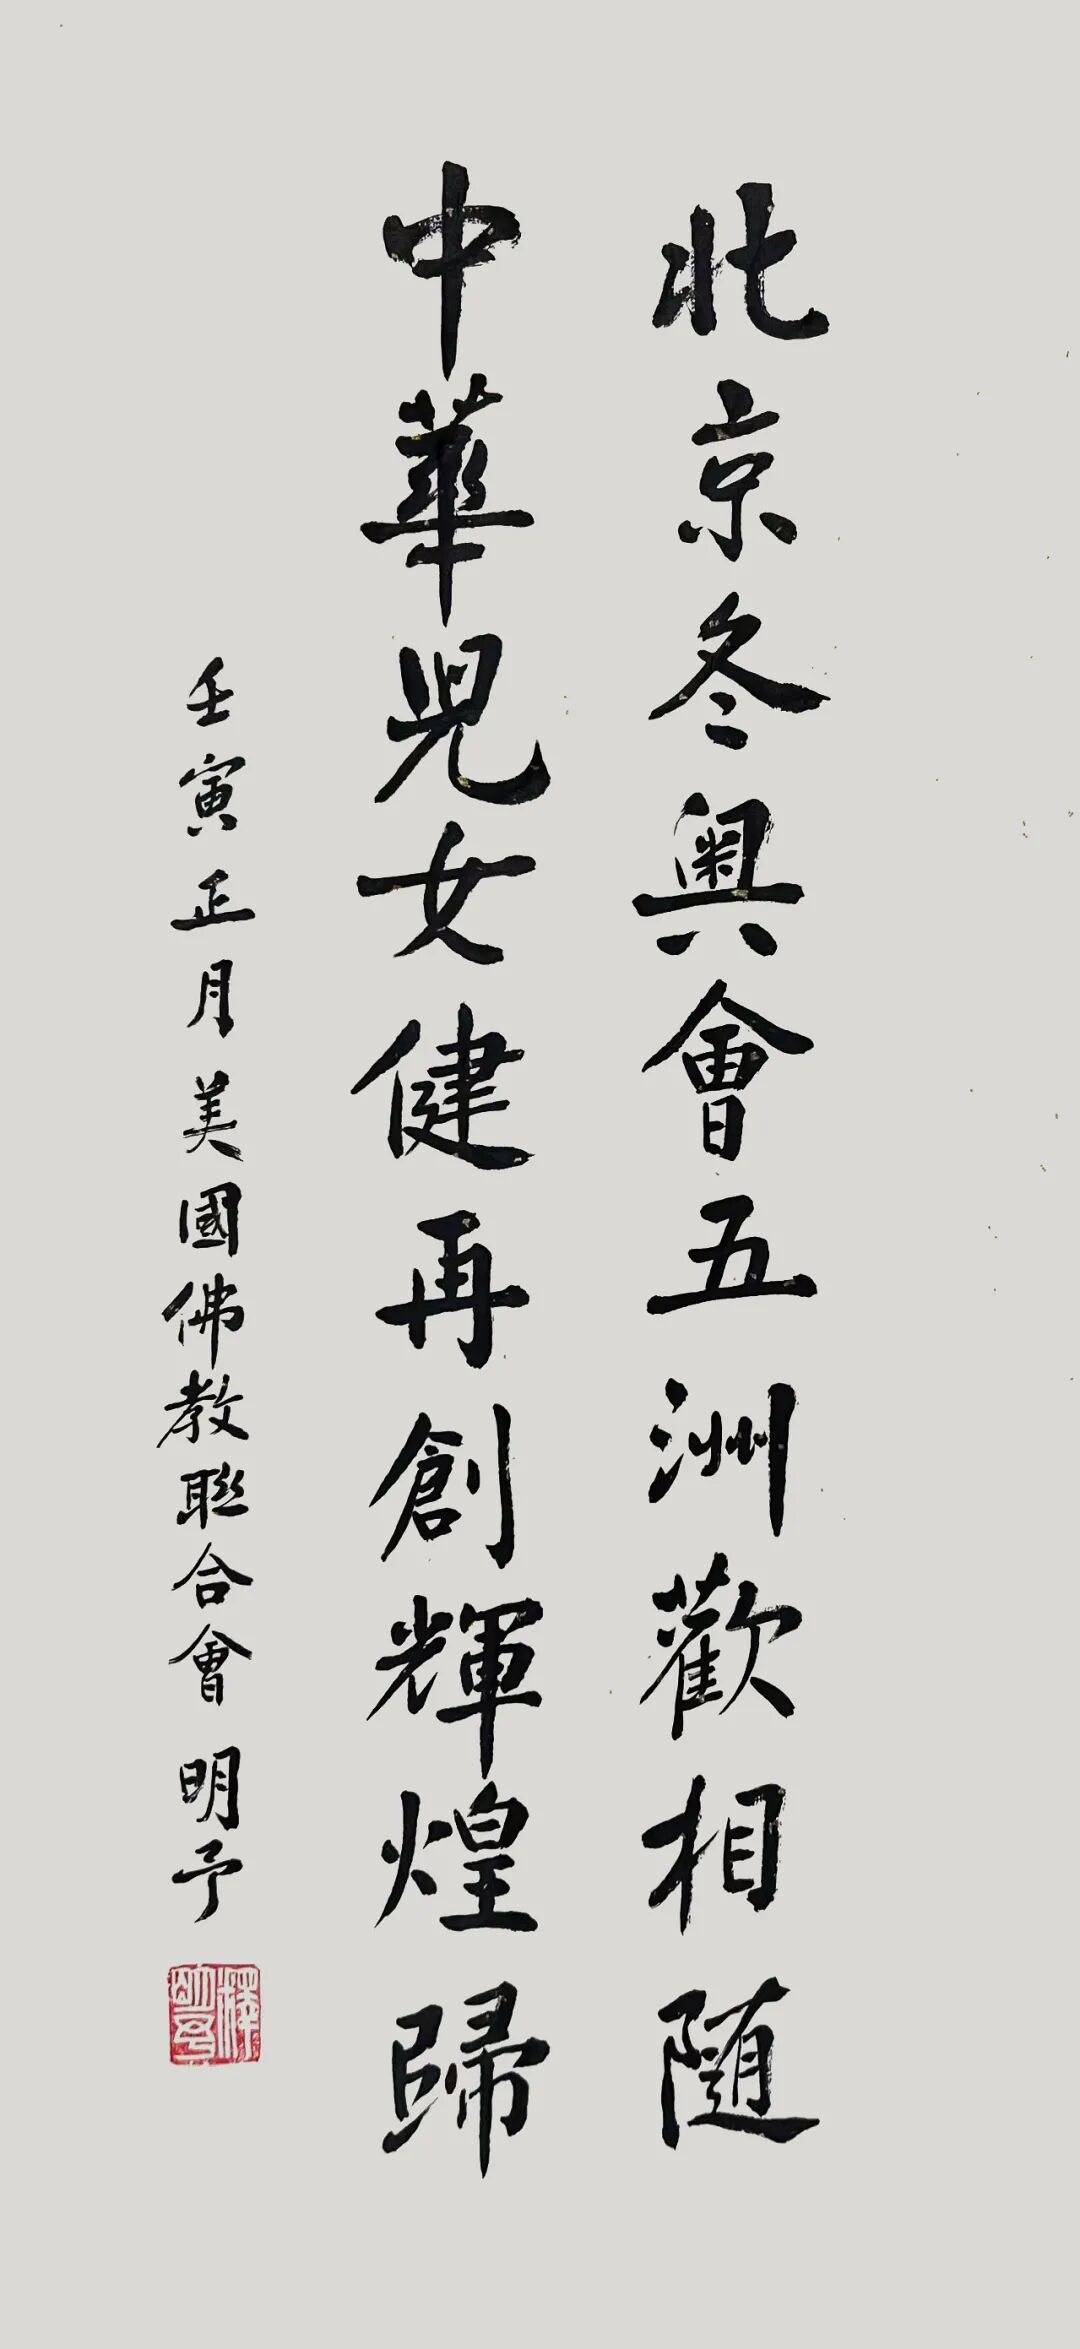 北京冬奧會五洲歡相随
中華兒女健再創輝煌歸
壬寅正月美國佛教聯合會 明予
釋明予